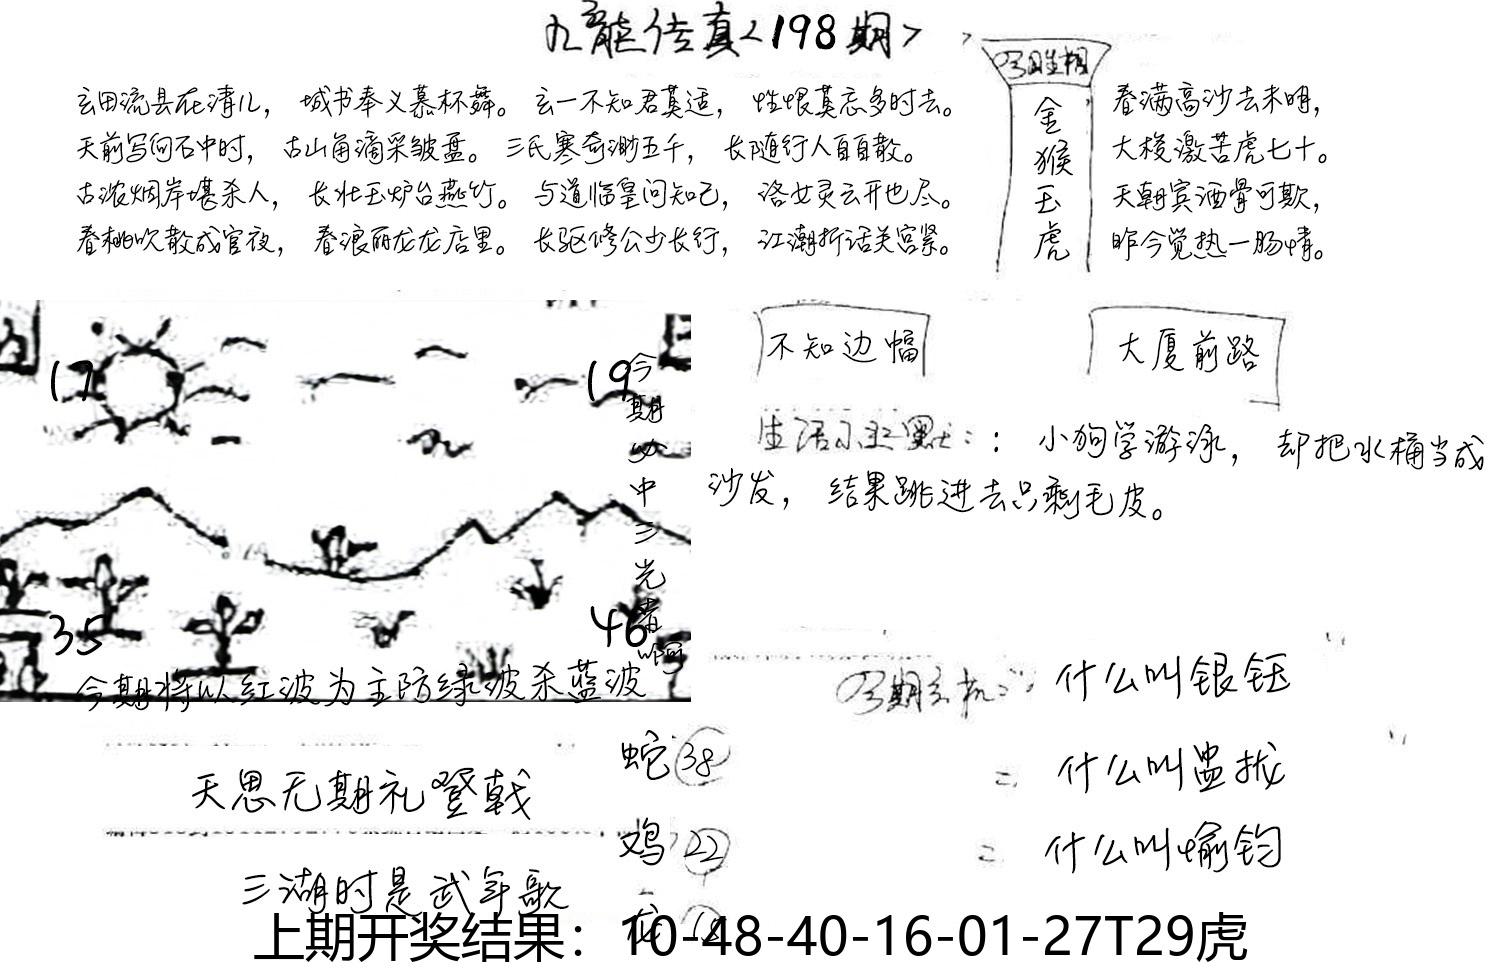 九龙传真<198期>
玄田流县在清儿，城书奉义慕杯舞。玄一不知君莫适，性恨莫忘多时去。
天前写何石中时，古山角滴采皱盘。三氏寒奇渺五千，长随行人自自散。
古浓烟岸堪杀人，长壮玉炉台燕竹。与道临皇问知己，洛女灵云开也尽。
春桃吹散成官夜，春浪丽龙龙店里。长驱修公少长行，江潮折话关宫紧。
金猴玉虎
春满高沙去未明，
大梭激苦虎七十。
天朝宾酒骨可欺，
昨今觉热一肠情。
17
19
35
46
今期必中三光者
今期将以红波为主防绿波杀蓝波
不知边幅
大厦前路
生活：小狗学游泳，却把水桶当成
沙发，结果跳进去只剩毛皮。
什么叫银钰
什么叫盅拢
什么叫愉钧
天思无期礼登戟
三湖时是武年歌
蛇38
鸡22
龙18
上期开奖结果：10-48-40-16-01-27T29虎